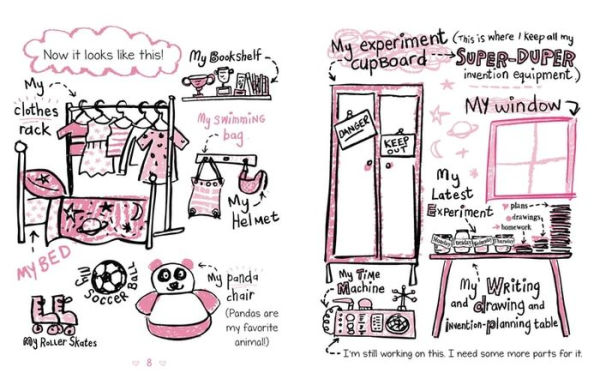 Now it looks like this!
My Bookshelf
My
clothes
rack
My swimming
bag
My
Helmet
MY BED
My
Soccer Ball
My panda
chair
(Pandas are
my favorite
animal!)
My Roller Skates
8
My experiment
cupboard
(This is where I keep all my
SUPER-DUPER
invention equipment.)
DANGER
KEEP
OUT
MY window
My
Latest
Experiment
plans
drawings
homework
Monday
Tuesday
Thursday
My Time
Machine
My Writing
and drawing and
invention-planning table
I'm still working on this. I need some more parts for it.